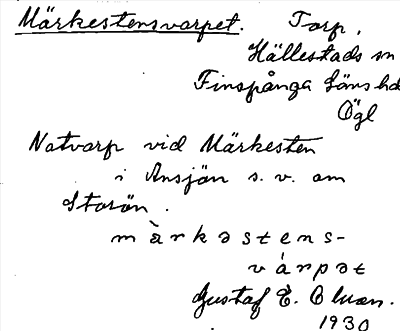 Märkestensvarpet. Torp,
Hällestads sn
Finspånga läns hd
Ögl
Notvarp vid Märkesten
i Ansjön s. v. om
Storön.
mä̀rkəstens-
várpət
Gustaf E.
1930